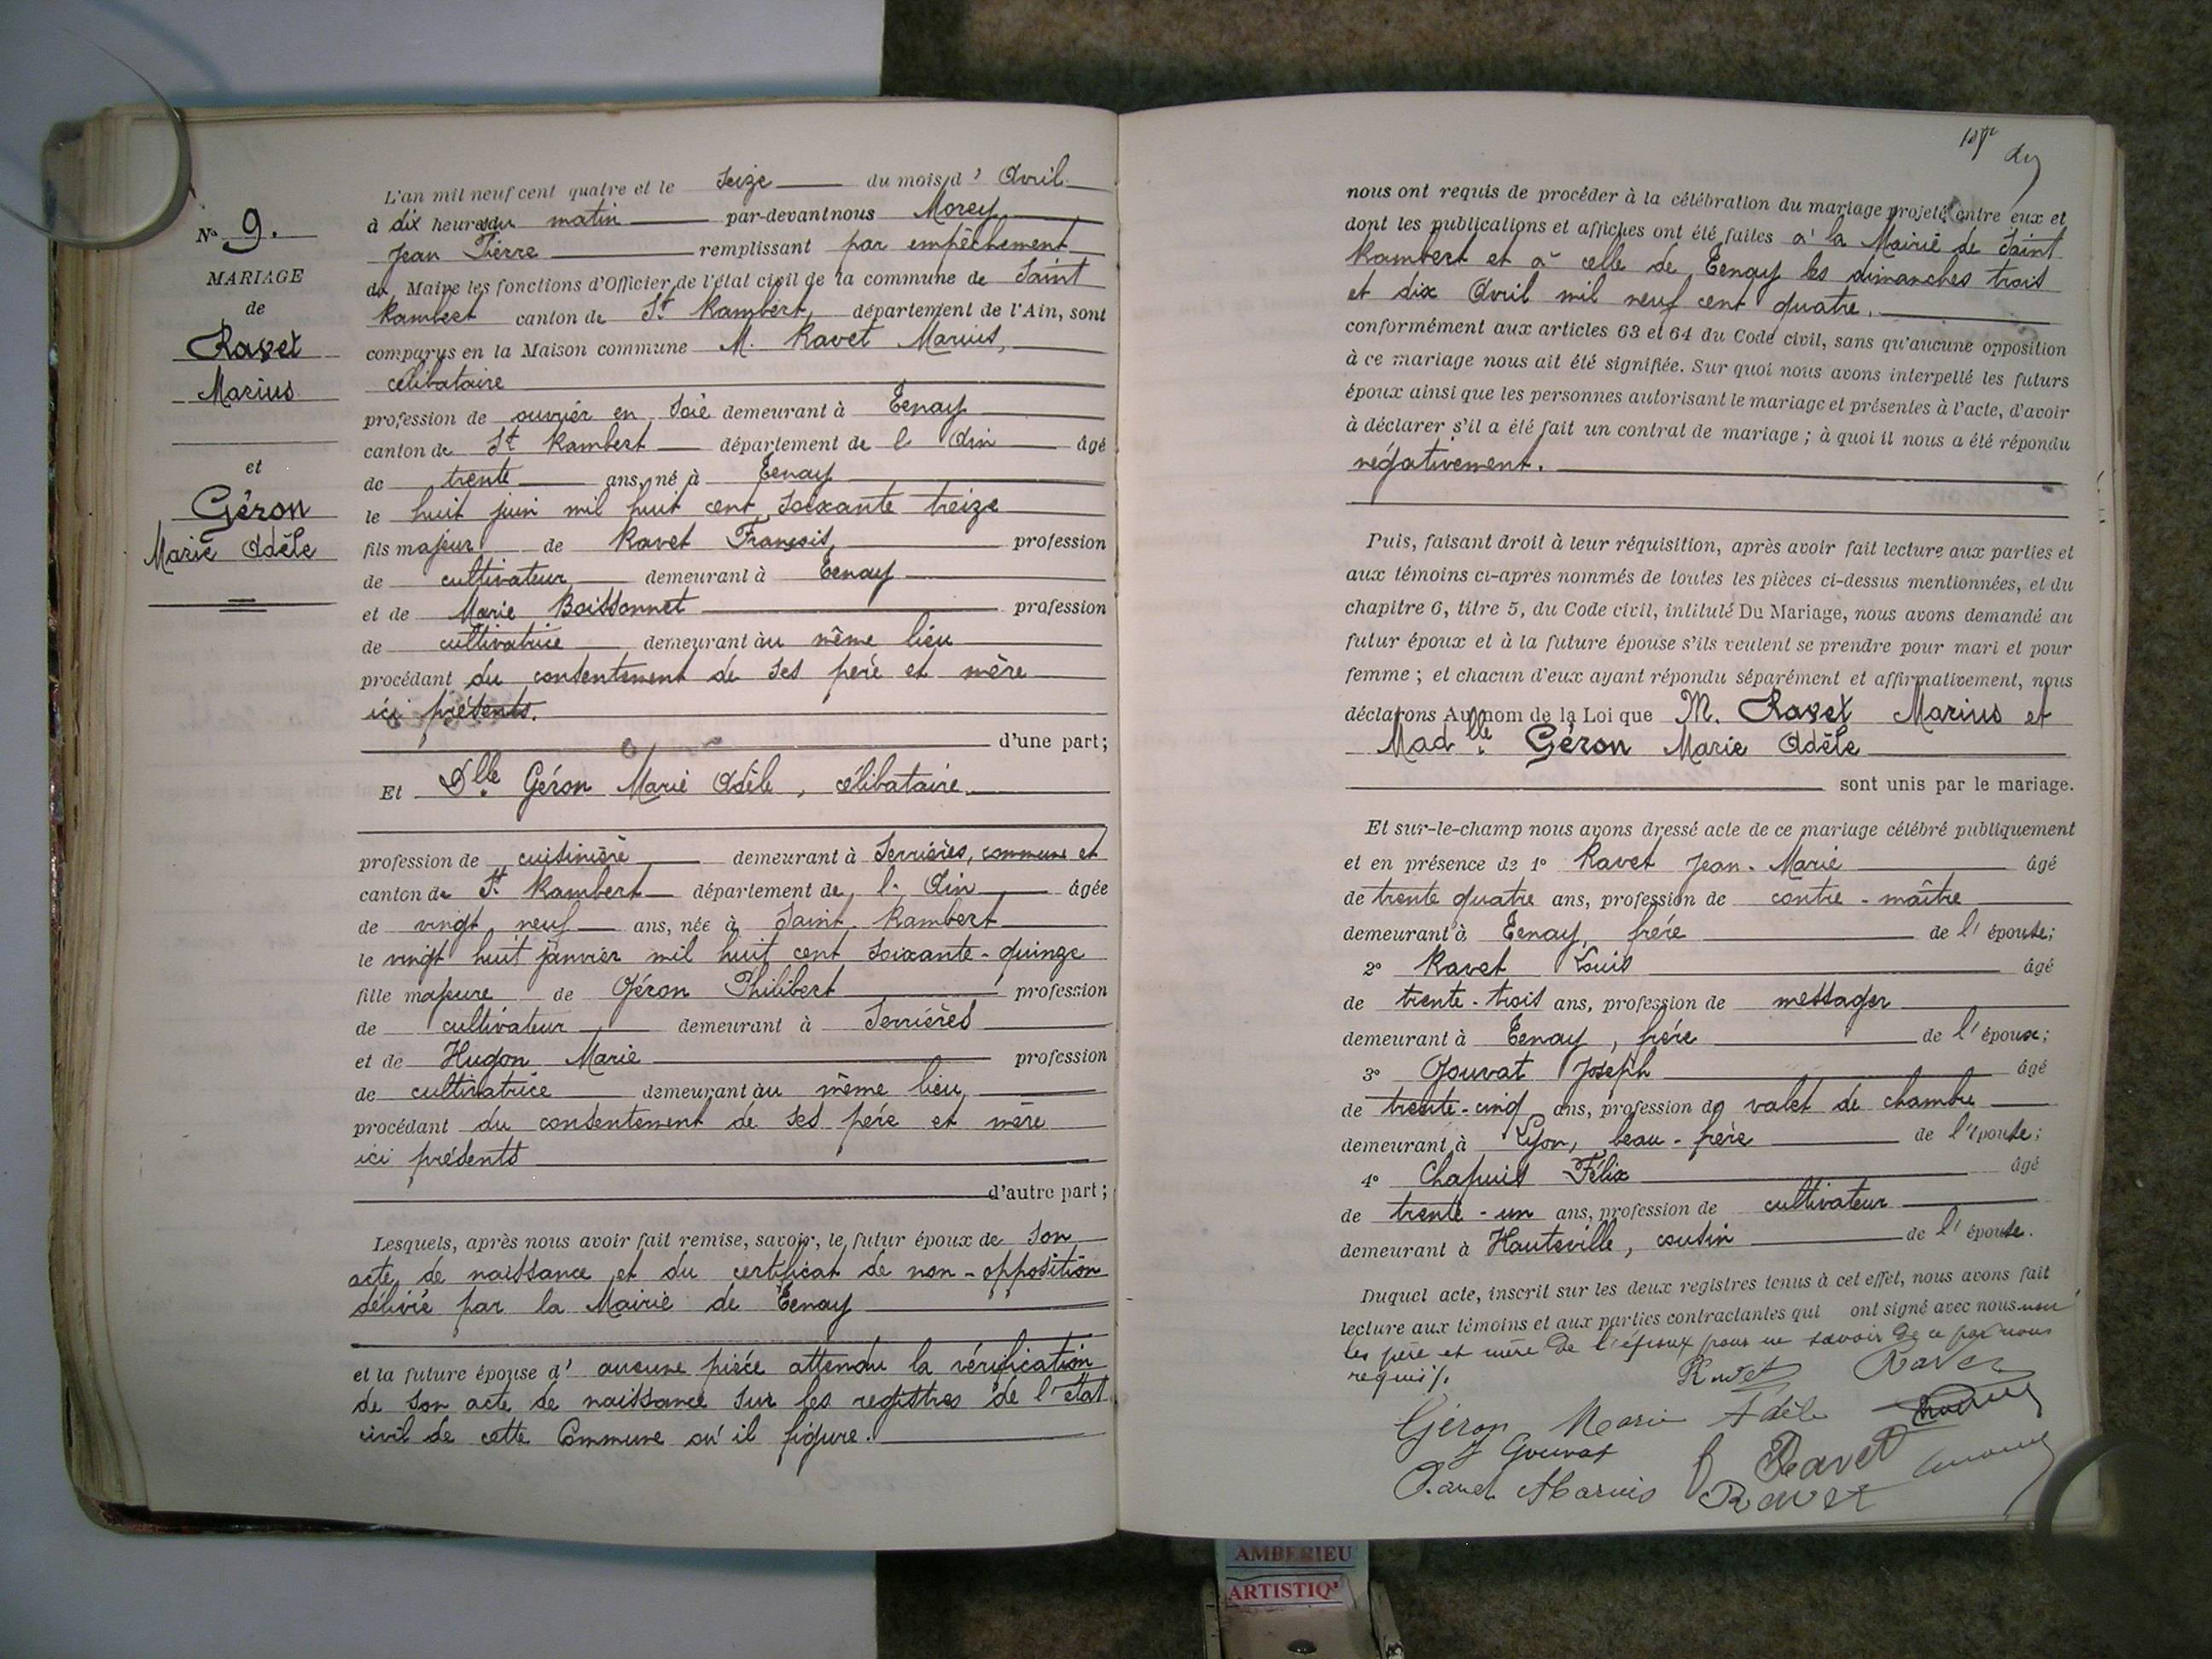 N° 9.
MARIAGE
de
Ravet
Marius
et
Géron
Marie Adèle
L'an mil neuf cent quatre et le Seize du mois d' Avril
à dix heures du matin par-devant nous Morey
Jean Pierre remplissant par empêchement
du Maire les fonctions d'Officier de l'état civil de la commune de Saint
Rambert canton de St Rambert, département de l'Ain, sont
comparus en la Maison commune M. Ravet Marius,
célibataire
profession de ouvrier en Soie demeurant à Tenay
canton de St Rambert département de l' Ain âgé
de trente ans, né à Tenay
le huit juin mil huit cent soixante treize
fils majeur de Ravet François, profession
de cultivateur demeurant à Tenay
et de Marie Boissonnet profession
de cultivatrice demeurant au même lieu
procédant du consentement de ses père et mère
ici présents.
d'une part;
Et Dlle Géron Marie Adèle, célibataire.
profession de cuisinière demeurant à Serrières, commune et
canton de St Rambert département de l' Ain âgée
de vingt neuf ans, née à Saint Rambert
le vingt huit janvier mil huit cent soixante-quinze
fille majeure de Géron Philibert profession
de cultivateur demeurant à Serrières
et de Hugon Marie profession
de cultivatrice demeurant au même lieu
procédant du consentement de ses père et mère
ici présents
d'autre part;
Lesquels, après nous avoir fait remise, savoir, le futur époux de son
acte de naissance et du certificat de non-opposition
délivré par la Mairie de Tenay
et la future épouse d' aucune pièce attendu la vérification
de son acte de naissance sur les registres de l'état
civil de cette Commune où il figure.
nous ont requis de procéder à la célébration du mariage projeté entre eux et
dont les publications et affiches ont été faites à la Mairie de Saint
Rambert et à celle de Tenay les dimanches trois
et dix Avril mil neuf cent quatre.
conformément aux articles 63 et 64 du Code civil, sans qu'aucune opposition
à ce mariage nous ait été signifiée. Sur quoi nous avons interpellé les futurs
époux ainsi que les personnes autorisant le mariage et présentes à l'acte, d'avoir
à déclarer s'il a été fait un contrat de mariage; à quoi il nous a été répondu
négativement.
Puis, faisant droit à leur réquisition, après avoir fait lecture aux parties et
aux témoins ci-après nommés de toutes les pièces ci-dessus mentionnées, et du
chapitre 6, titre 5, du Code civil, intitulé Du Mariage, nous avons demandé au
futur époux et à la future épouse s'ils veulent se prendre pour mari et pour
femme; et chacun d'eux ayant répondu séparément et affirmativement, nous
déclarons Au nom de la Loi que M. Ravet Marius et
Madlle Géron Marie Adèle
sont unis par le mariage.
Et sur-le-champ nous avons dressé acte de ce mariage célébré publiquement
et en présence de 1° Ravet Jean-Marie âgé
de trente quatre ans, profession de contre-maître
demeurant à Tenay, frère de l' épouse;
2° Ravet Louis âgé
de trente-trois ans, profession de messager
demeurant à Tenay, frère de l' époux;
3° Gouvat Joseph âgé
de trente-cinq ans, profession de valet de chambre
demeurant à Lyon, beau-frère de l'épouse;
4° Chapuis Félix âgé
de trente-un ans, profession de cultivateur
demeurant à Hauteville, cousin de l' épouse.
Duquel acte, inscrit sur les deux registres tenus à cet effet, nous avons fait
lecture aux témoins et aux parties contractantes qui ont signé avec nous non
les père et mère de l'époux pour ne savoir de ce par nous
requis.
Ravet Ravet
Géron Marie Adèle
J Gouvat Ravet
Ravet Marius Ravet
AMBERIEU
ARTISTIQ'